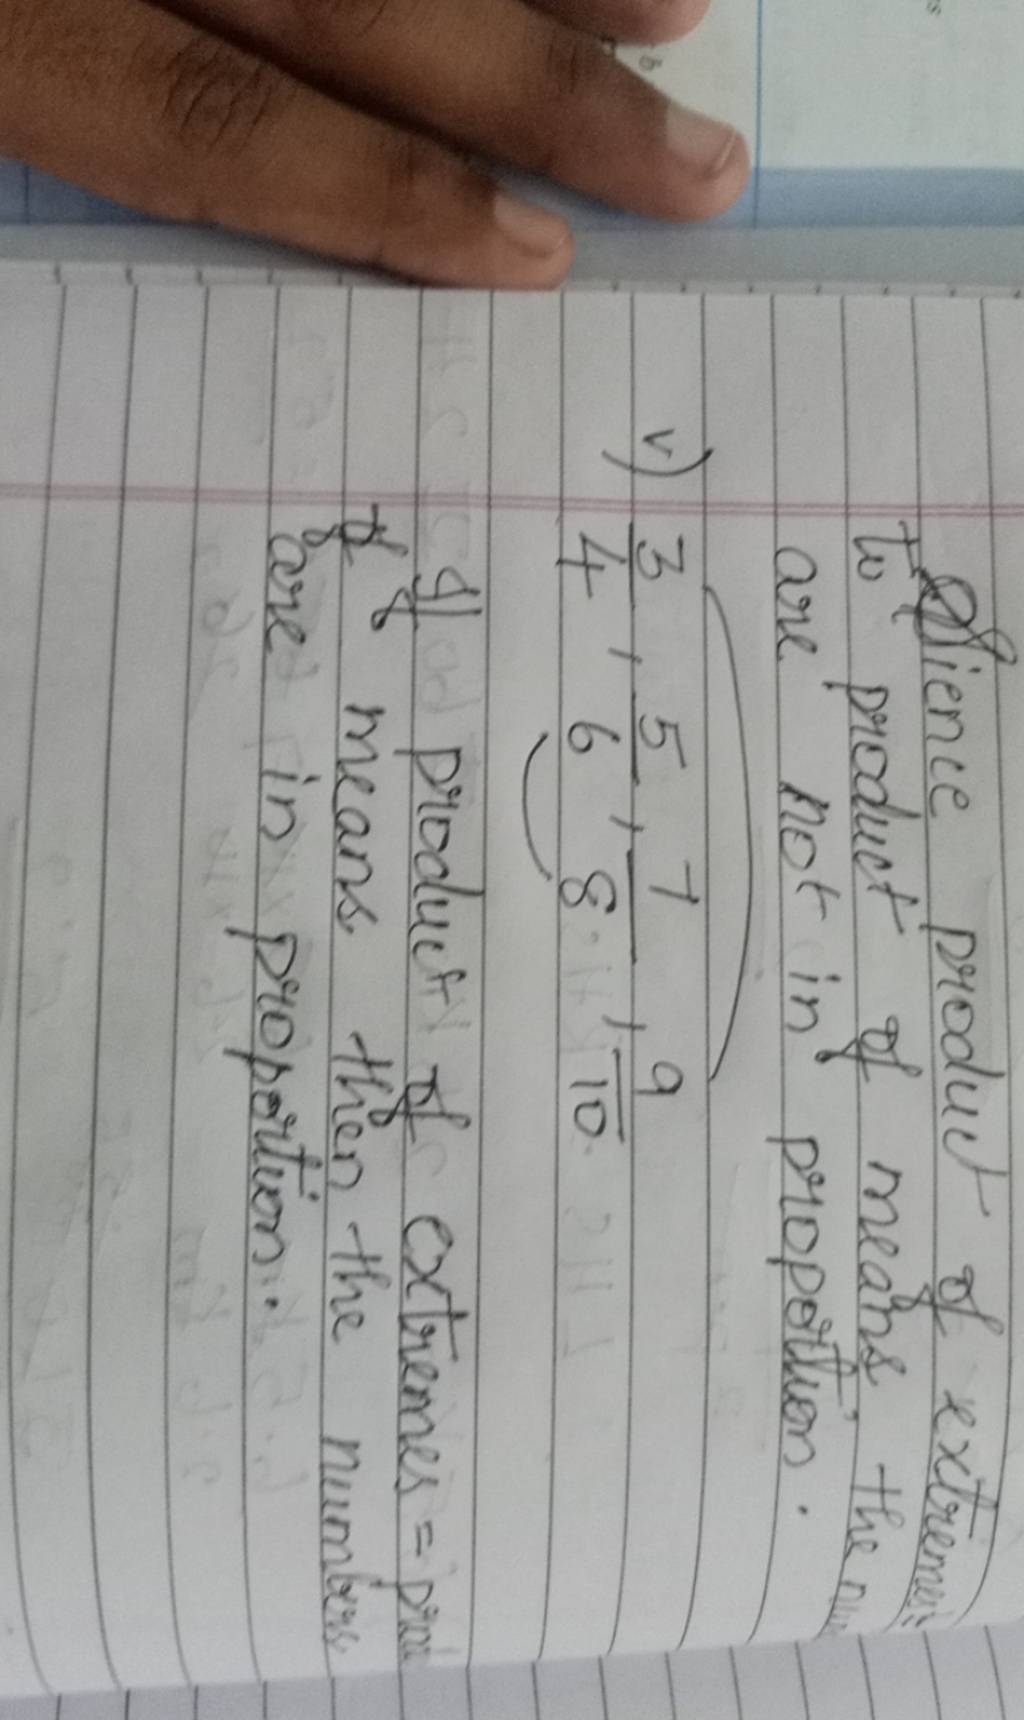 Sience product of extremes
to product of means the
are not in proportion.
v) 3/4 , 5/6 , 7/8 , 9/10
If product of extremes =
of means then the numbers
are in proportion.